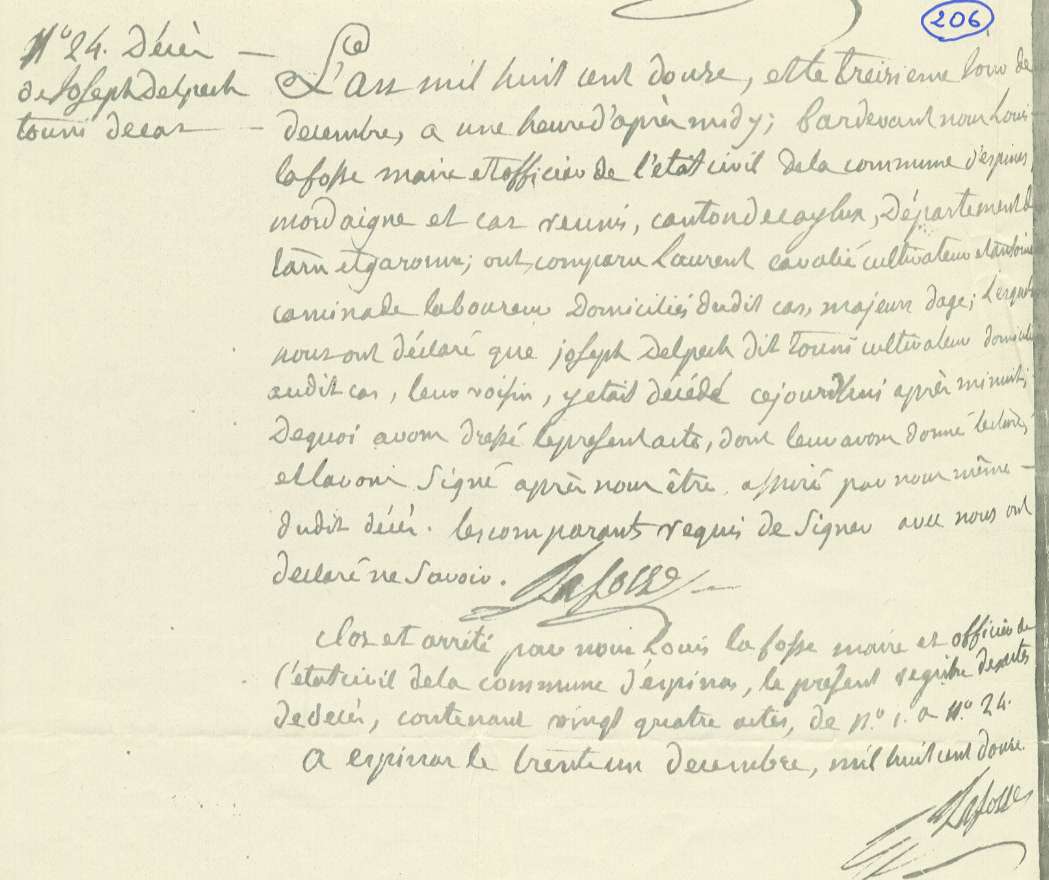 206
N.º 24. Décès
de Joseph Delpech
touni decas
L'an mil huit cent douze, et le treisieme jour de
decembre, a une heure d'après midy; pardevant nous Louis
lafosse maire et officier de l'état civil de la commune d'espinas,
mordaigne et cas reunis, canton de caylux, Département de
tarn et garonne; ont comparu Laurent cavalié cultivateur et antoine
caminade laboureur Domiciliés dudit cas, majeurs dage; lesquels
nous ont déclaré que joseph Delpech dit touni cultivateur domicilié
audit cas, leur voisin, y etait décédé cejourd'hui après minuit;
Dequoi avons dressé le present acte, dont leur avons donné lecture
et l'avons signé après nous être assuré par nous même
dudit décès. les comparants requis de signer avec nous ont
déclaré ne savoir. Lafosse
Clos et arrété par nous Louis lafosse maire et officier de
l'état civil de la commune d'espinas, le present registre des actes
de decès, contenant vingt quatre actes, de N.º 1. a N.º 24.
A espinas le trente un decembre, mil huit cent douze.
Lafosse